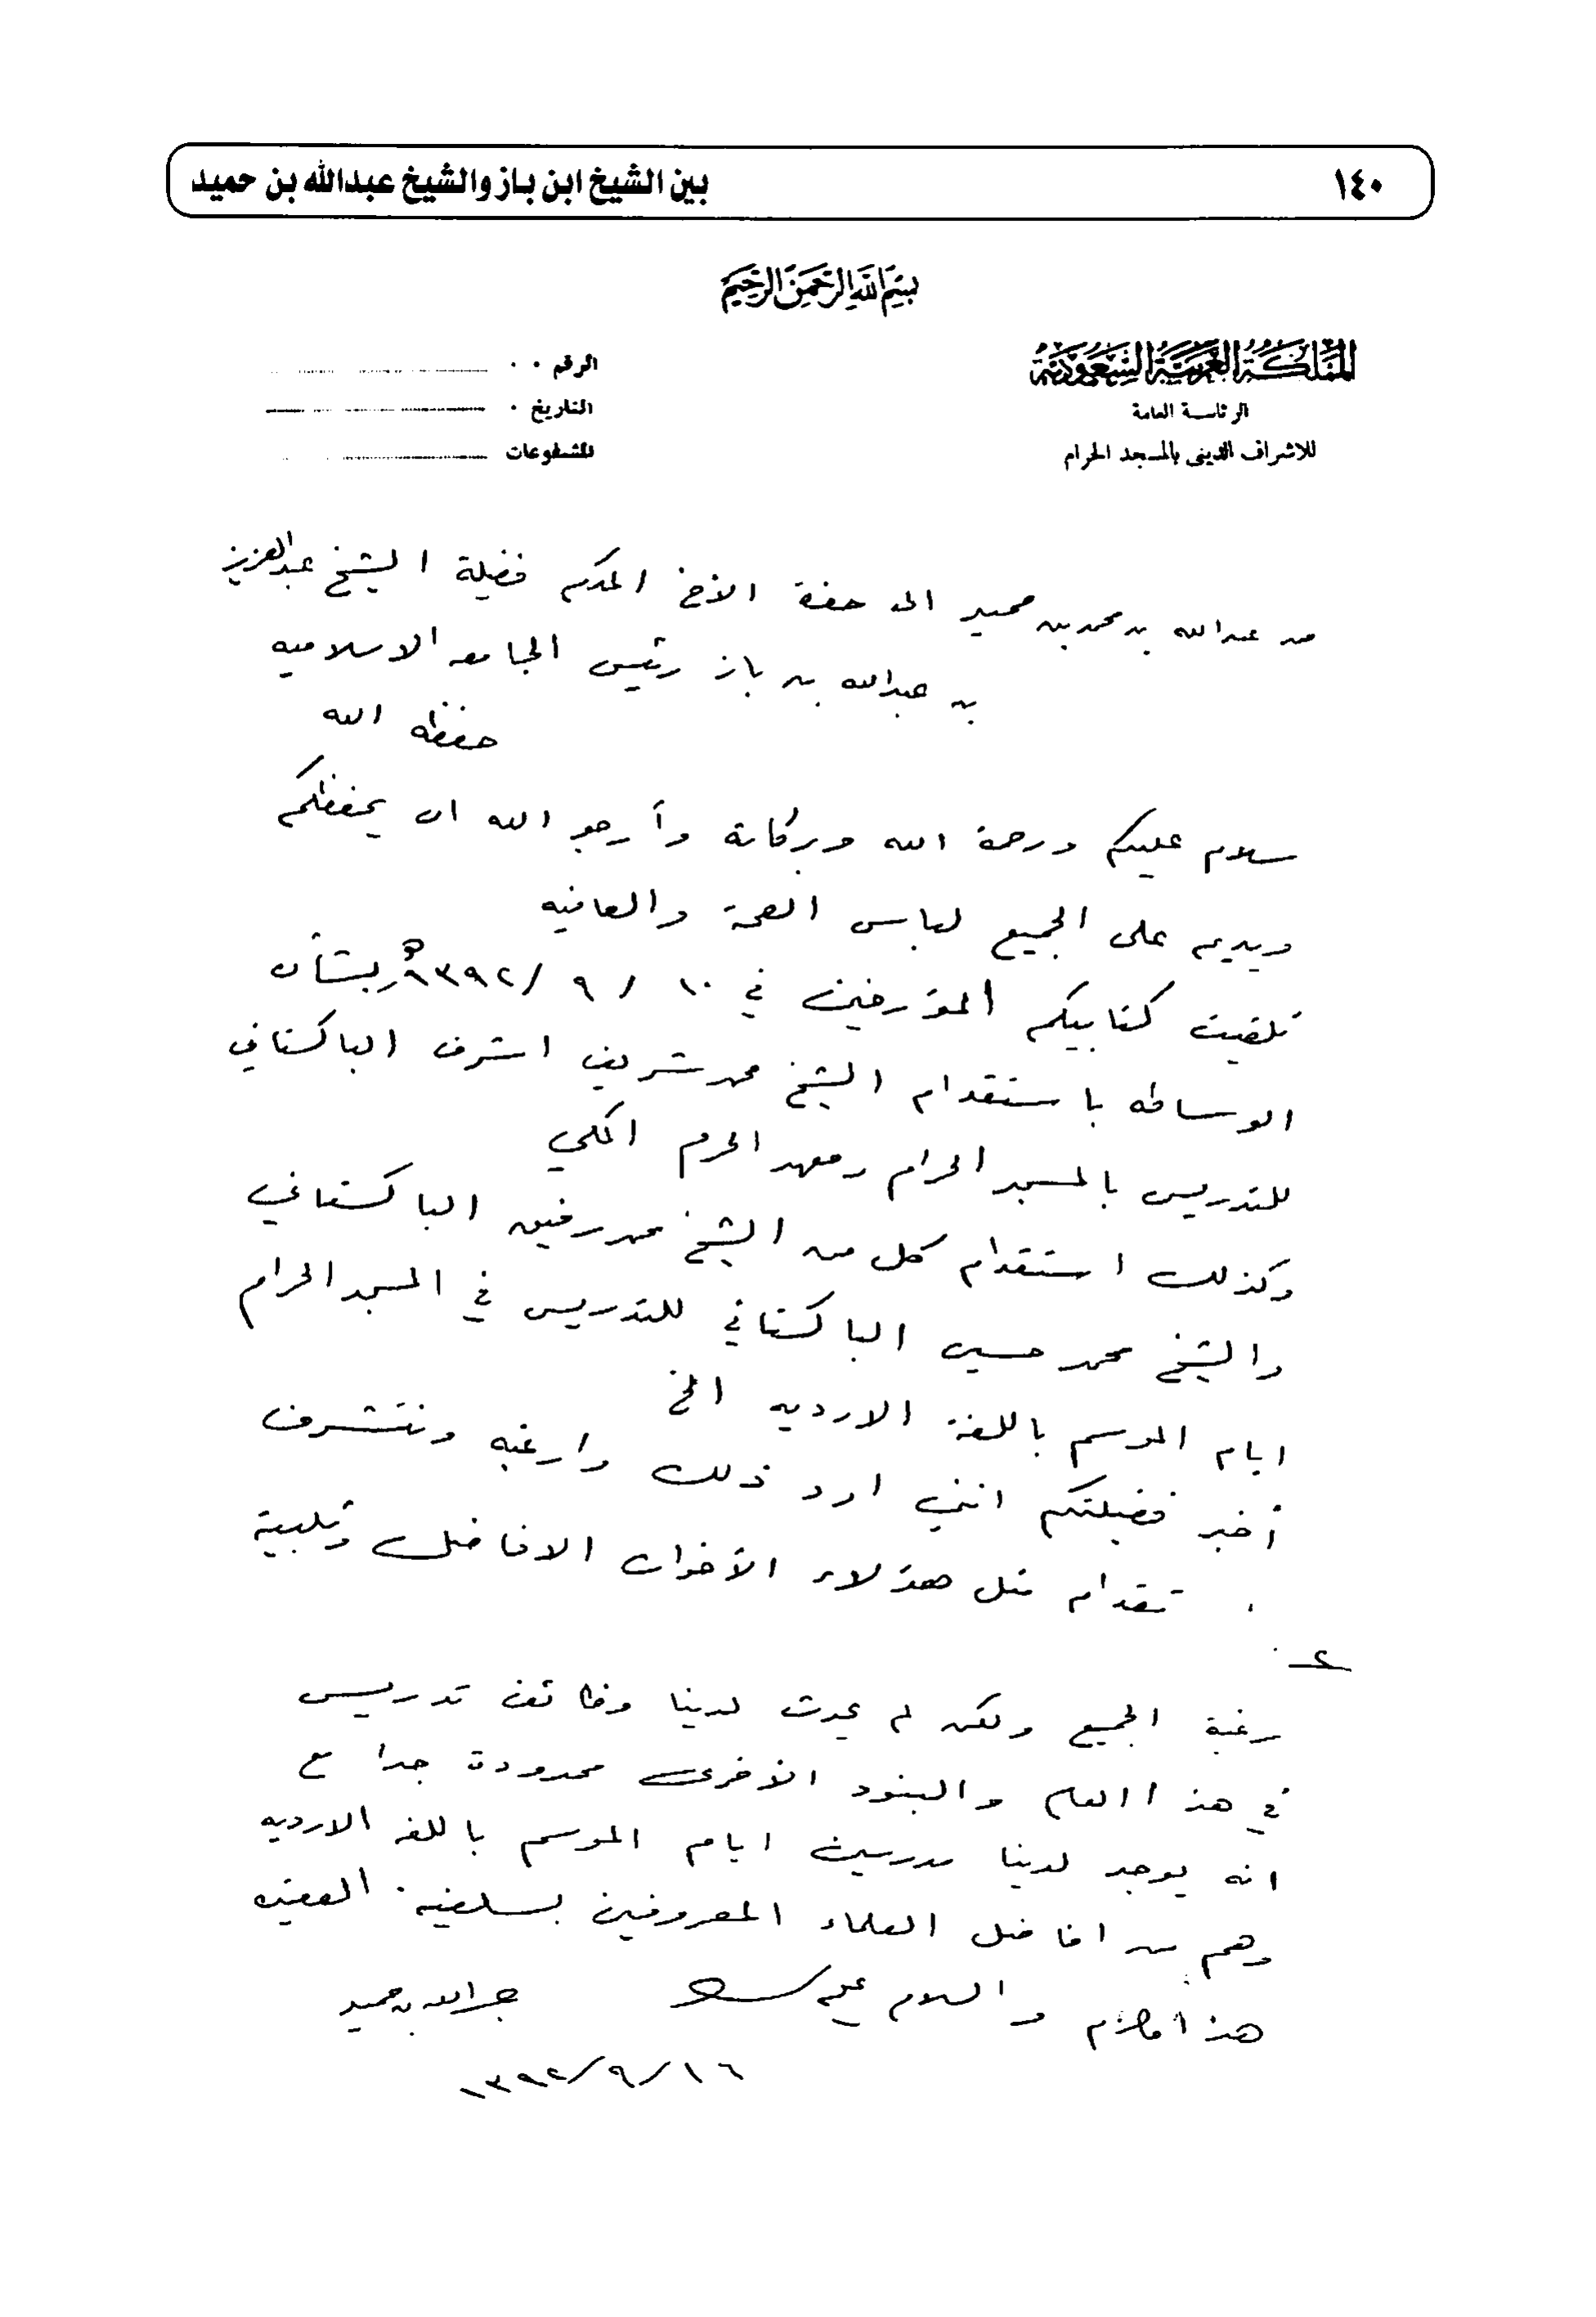 ١٤٠
بين الشيخ ابن باز والشيخ عبدالله بن حميد
بسم الله الرحمن الرحيم
المملكة العربية السعودية
الرئاسة العامة
للاشراف الدينى بالمسجد الحرام
الرقم
التاريخ
المشفوعات
من عبدالله بن محمد بن حميد الى حضرة الأخ المكرم فضيلة الشيخ عبدالعزيز
بن عبدالله بن باز رئيس الجامعه الاسلاميه
حفظه الله
سلام عليكم ورحمة الله وبركاته وأرجو الله ان يحفظكم
ويديم على الجميع لباس الصحة والعافيه
تلقيت كتابيكم المؤرخين في ١٠ / ٩ / ١٣٩٢هـ بشأن
الوساطه باستقدام الشيخ محمد شريف اشرف الباكستاني
للتدريس بالمسجد الحرام ومعهد الحرم المكي
وكذلك استقدام كل من الشيخ محمد رفيق الباكستاني
والشيخ محمد حسين الباكستاني للتدريس في المسجد الحرام
ايام الموسم باللغة الارديه الخ
أخبر فضيلتكم انني اود ذلك وارغبه ونتشرف
تقدام مثل هؤلاء الأخوان الافاضل وتلبية
٢
رغبة الجميع ولكن لم يحدث لدينا وظائف تدريس
في هذا العام والبنود الأخرى محدودة جدا مع
انه يوجد لدينا مدرسين ايام الموسم باللغه الارديه
وهم من افاضل العلماء المعروفين بسلفية العقيده
هذا مالزم والسلام عليكم
عبدالله بن حميد
١٣٩٢/٩/١٦